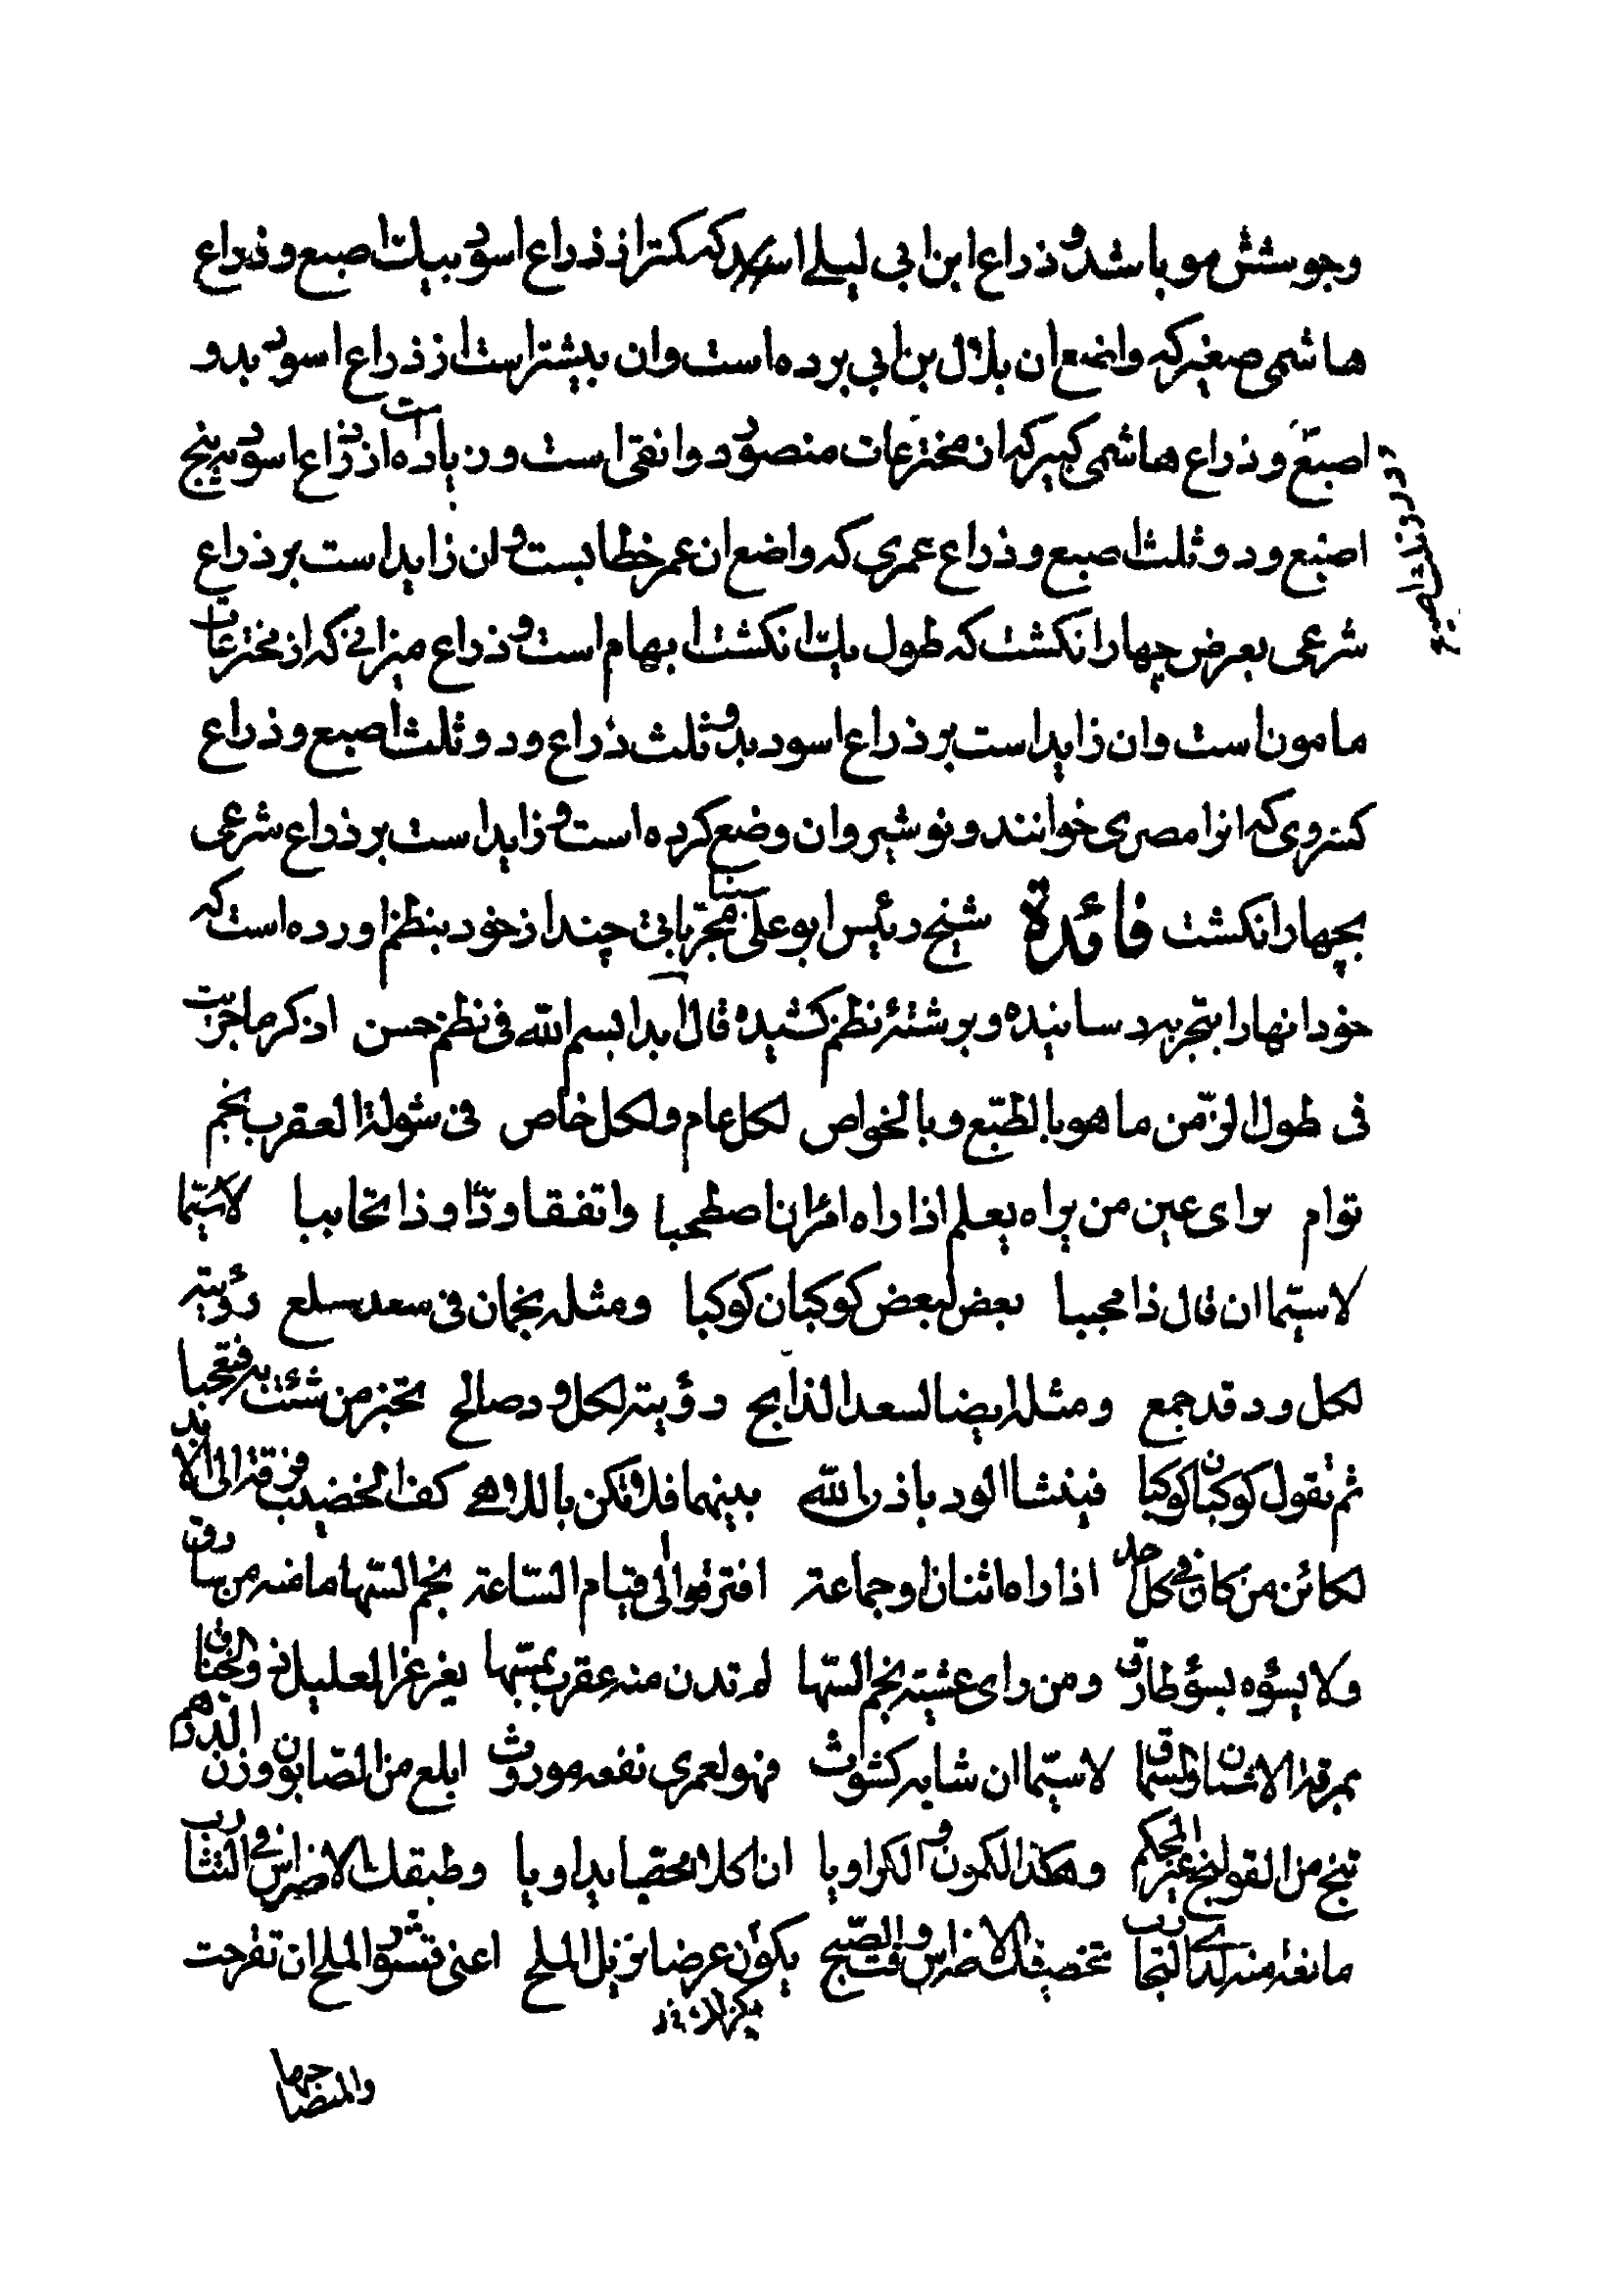 وجو شش مو باشد و ذراع ابن ابی لیلے است که کمتر از ذراع اسود بیک اصبع و ذراع
هاشمی صغیر که واضع ان بلال بن ابی برده است وان بیشتر است از ذراع اسود بدو
اصبع و ذراع هاشمی کبیر که از مخترعات منصور دوانقی است و زیاده از ذراع اسود به پنج
اصبع و دو ثلث اصبع و ذراع عمری که واضع ان عمر خطابست و ان زاید است بر ذراع
شرعی بعرض چهار انکشت که طول یک انکشت ابهام است و ذراع میزانے که از مخترعات
مامون است وان زاید است بر ذراع اسود بدو ثلث ذراع و دو ثلث اصبع و ذراع
کسروی که انرا مصری خوانند و نوشیروان وضع کرده است و زاید است بر ذراع شرعی
بچهار انکشت فائدة شیخ رئیس ابو علی سینا مجرباتی چند از خود بنظم اورده است که
خود انها را بتجربه رسانیده و برشتهٔ نظم کشیده قال ابدا بسم الله فی نظم حسن اذکر ما جربت
فی طول الزمن ما هو بالطبع و بالخواص لکل عام ولکل خاص فی شولة العقرب نجم
توام یرای عین من یراه یعلم اذا راه امران اصطحبا واتفقا ودّا وذا تحاببا لاسیّما
لاسیّما ان قال ذا محببا بعض لبعض کوکبان کوکبا ومثله نجمان فی سعد سلع رؤیته
لکل ود قد جمع ومثله ایضا لسعد الذابح رؤیته لکل ود صالح تختبر من شئت به فتعجبا
ثم تقول کوکبان کوکبا فینشا الود باذن الله بینهما فلا تکن باللاهی کف الخضیب فرقة الی الابد
لکائن من کان فی کل حد اذا راه اثنان او جماعة افترقوا الی قیام الساعة نجم السها مامنه من سارق
ولا یسؤه بسؤ طارق ومن رای عشیة نجم السها لم تدن منه عقرب یمسها یغرغر العلیل فی الخناق
بمرقة الاشنان والسماق لاسیّما ان شابه کشوث فهو لعمری نفعه موروث ابلع من الصابون وزن الدرهم
تنج من القولنج غیر المحکم وهکذا الکمون و الکراویا ان اکلا تحقصا یداویا وطبقك الاضراس فی التثارب
مانفه منه لدی التجارب تخصیفك الاضراس فتح والصبح یکون عرضا نزیل الملح اعنی قشور الملح ان تفرجت
والمضاجها